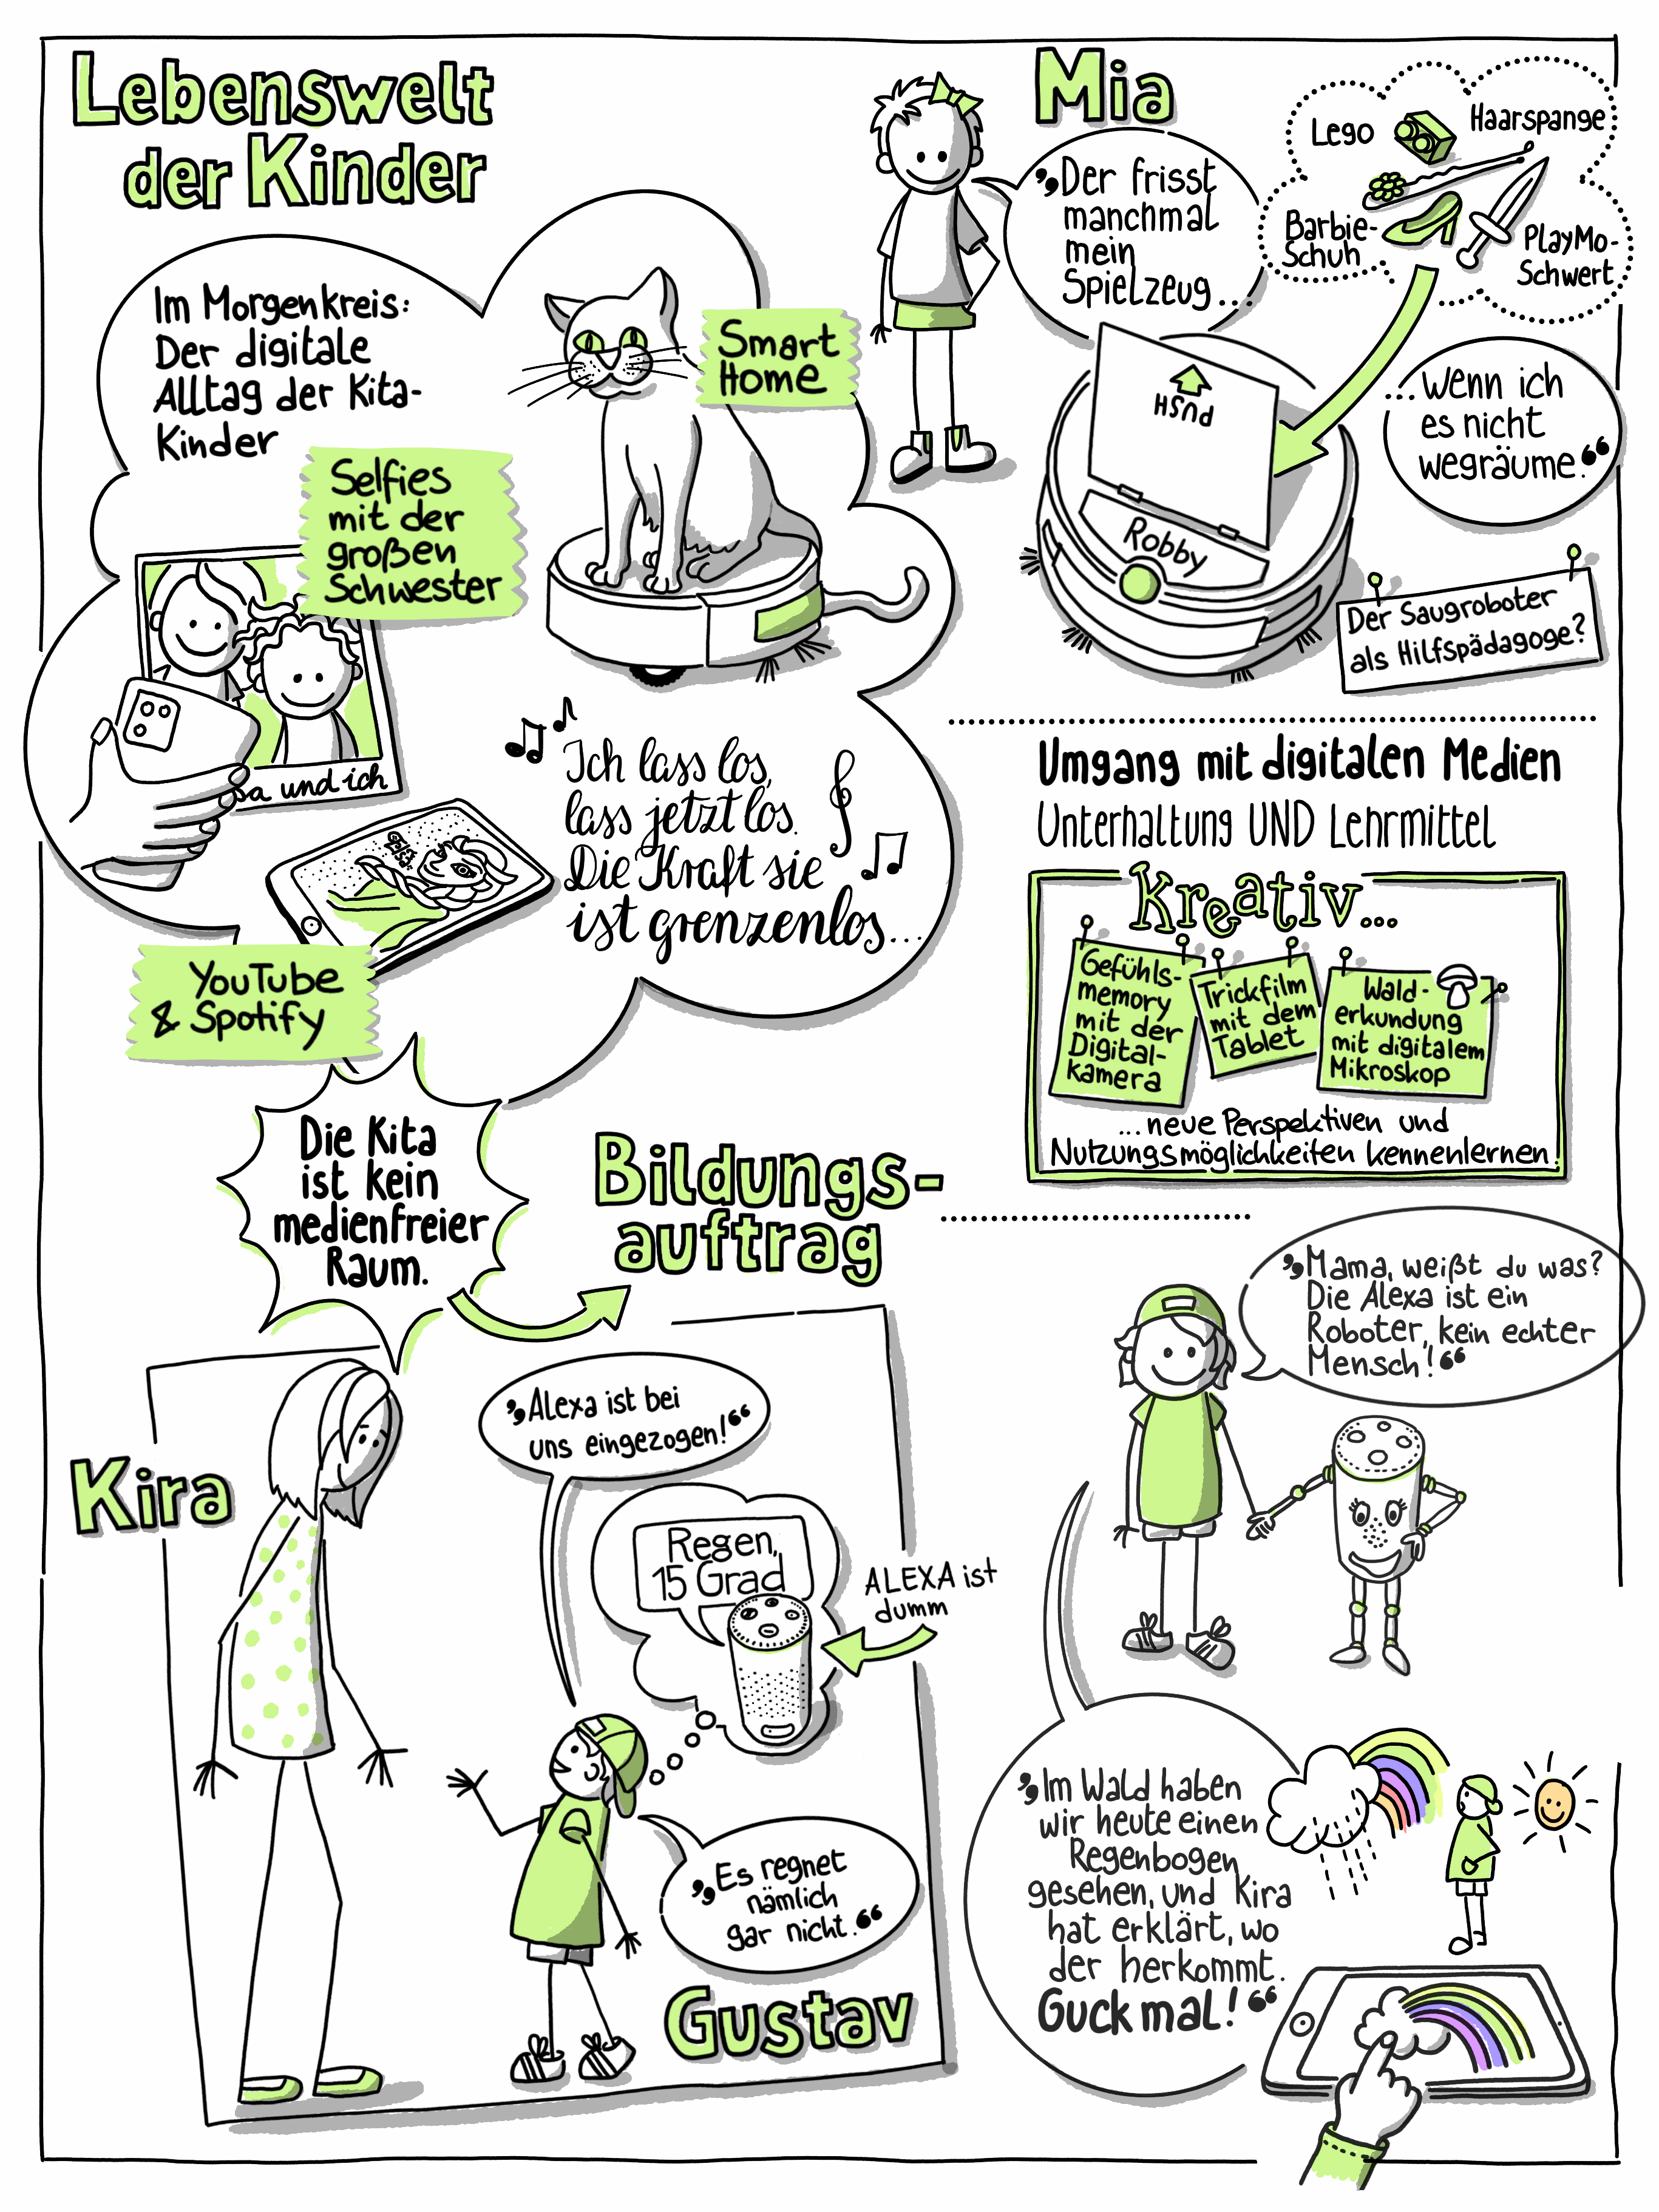 Lebenswelt
der Kinder
Im Morgenkreis:
Der digitale
Alltag der Kita-
Kinder
Smart
Home
Selfies
mit der
großen
Schwester
sa und ich
Ich lass los,
lass jetzt los.
Die Kraft sie
ist grenzenlos...
Elsa
YouTube
& Spotify
Mia
„Der frisst
manchmal
mein
Spielzeug...
Lego
Haarspange
Barbie-
Schuh
PlayMo-
Schwert
...wenn ich
es nicht
wegräume.“
PUSH
Robby
Der Saugroboter
als Hilfspädagoge?
Umgang mit digitalen Medien
Unterhaltung UND Lehrmittel
Kreativ...
Gefühls-
memory
mit der
Digital-
kamera
Trickfilm
mit dem
Tablet
Wald-
erkundung
mit digitalem
Mikroskop
...neue Perspektiven und
Nutzungsmöglichkeiten kennenlernen!
Die Kita
ist kein
medienfreier
Raum.
Bildungs-
auftrag
Kira
„Alexa ist bei
uns eingezogen!“
Regen,
15 Grad
ALEXA ist
dumm
„Es regnet
nämlich
gar nicht.“
Gustav
„Mama, weißt du was?
Die Alexa ist ein
Roboter, kein echter
Mensch!“
„Im Wald haben
wir heute einen
Regenbogen
gesehen, und Kira
hat erklärt, wo
der herkommt.
Guck mal!“